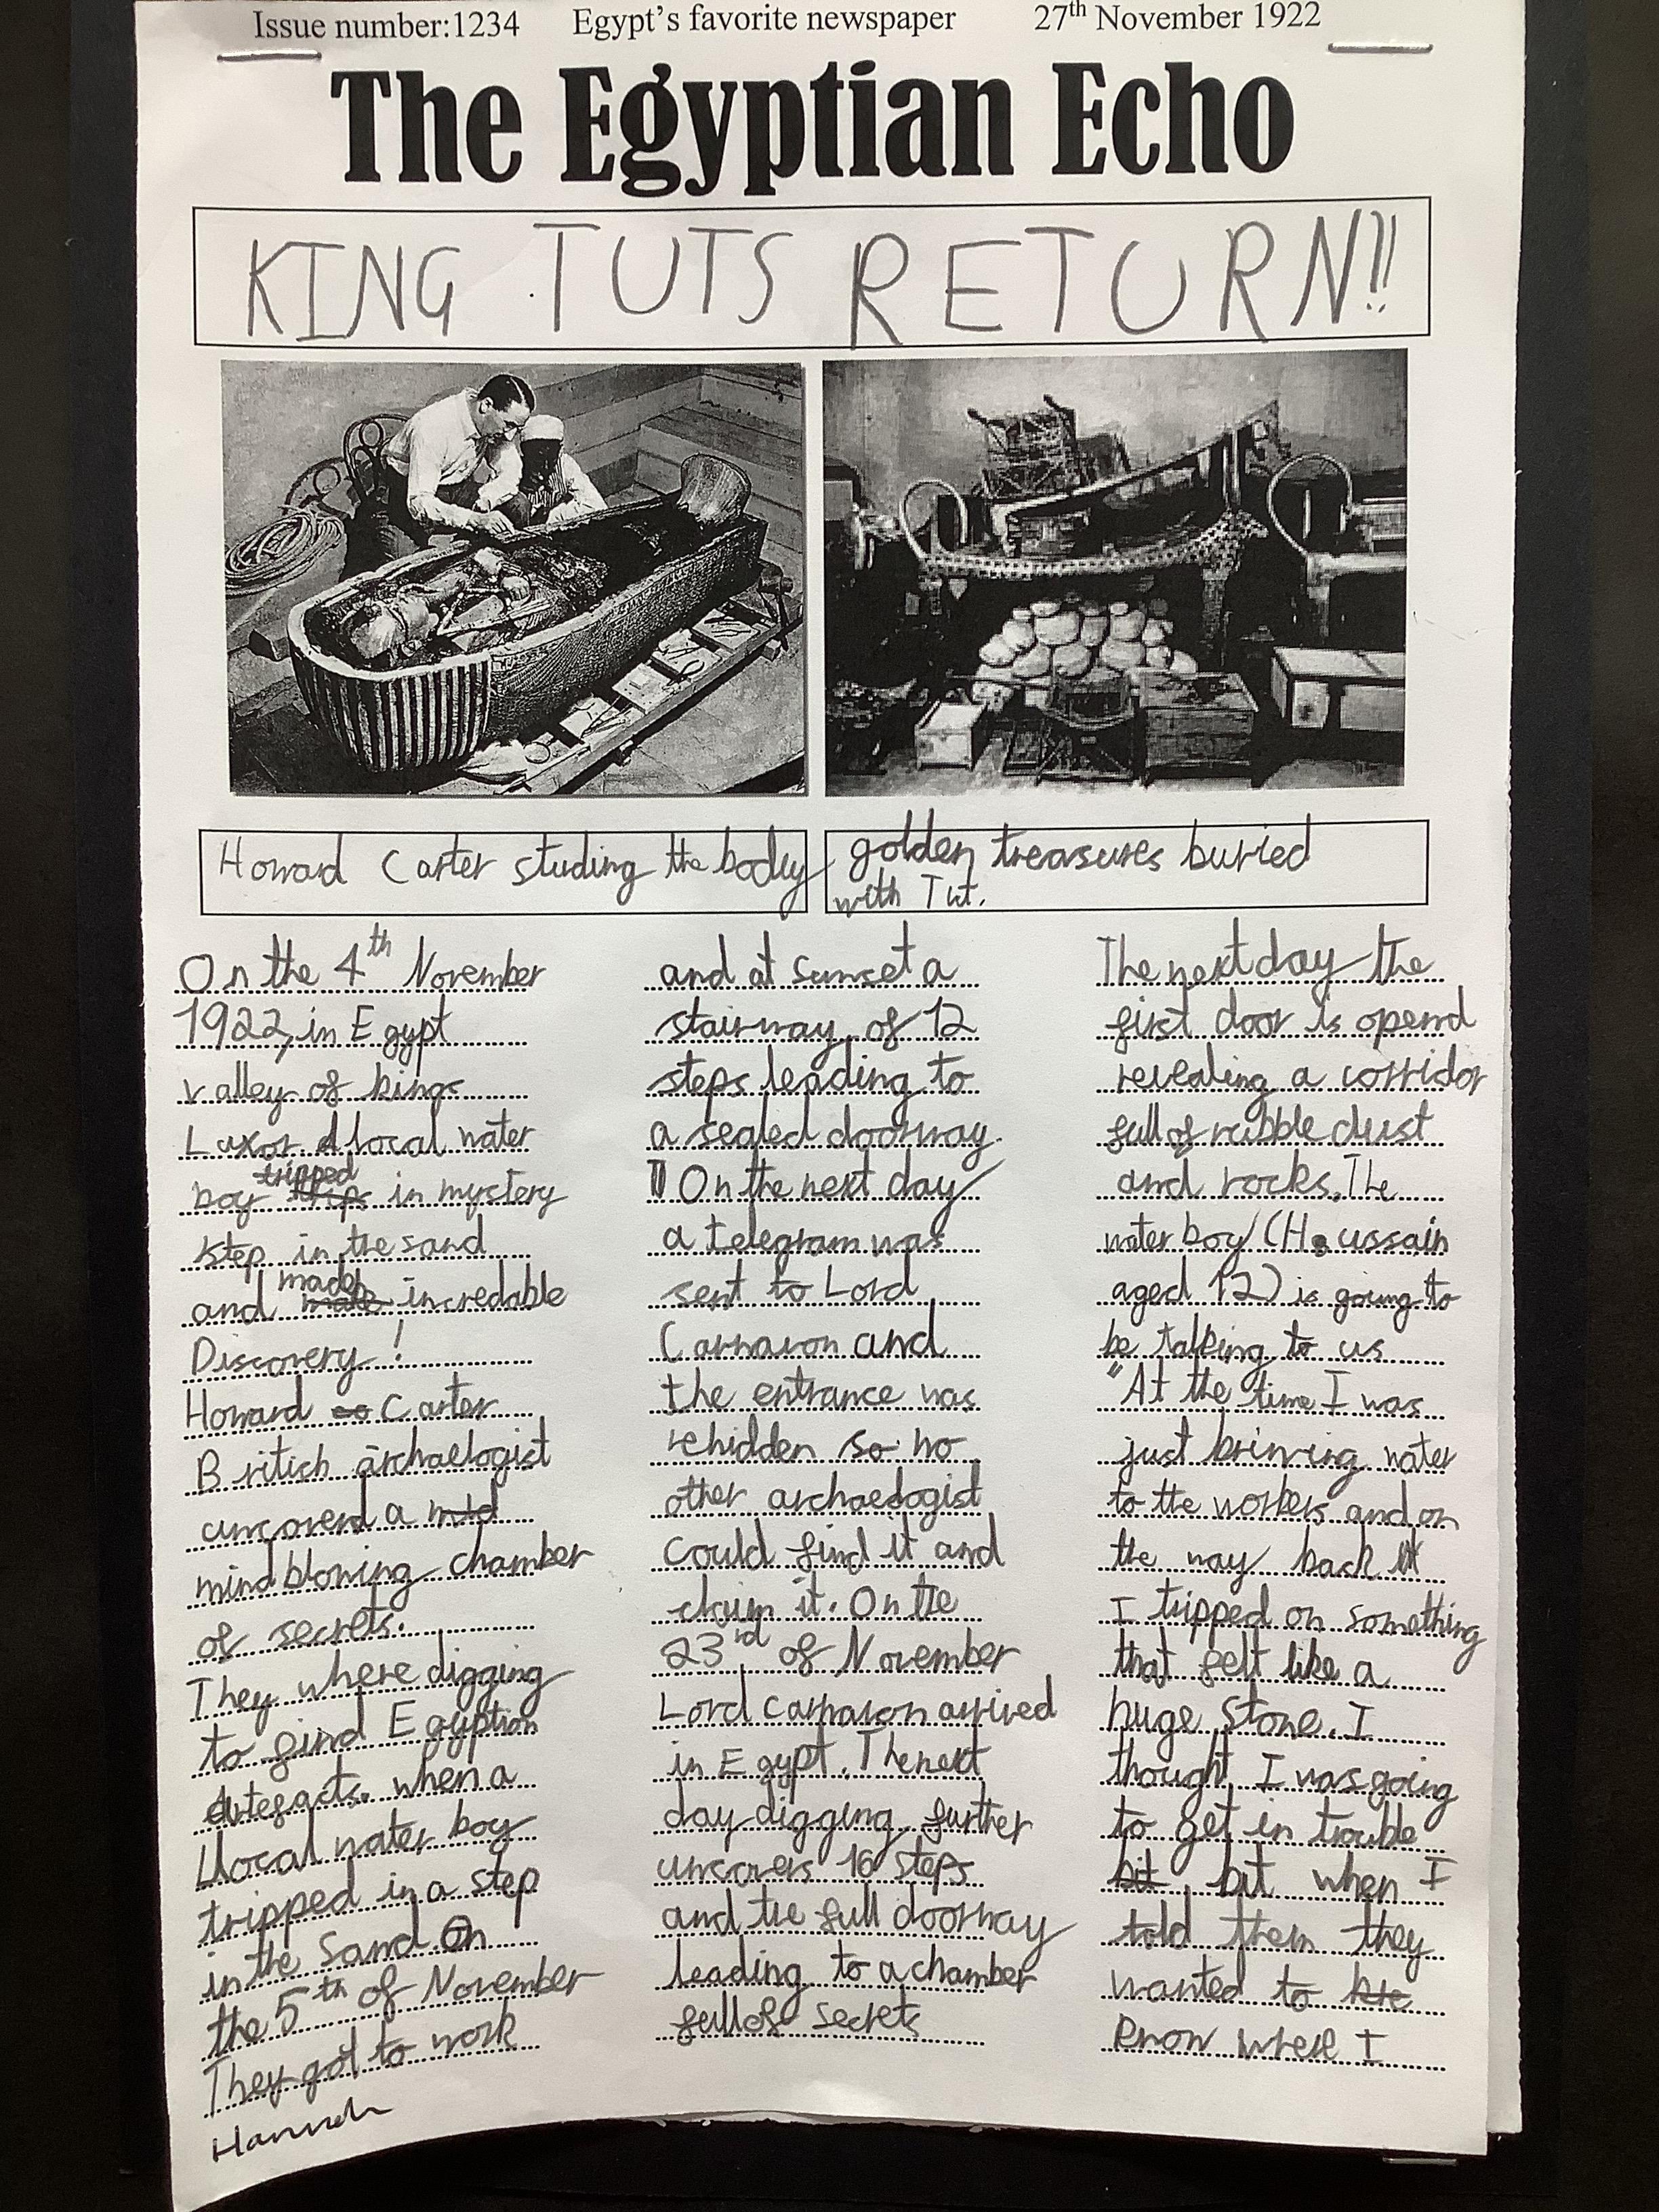 Issue number:1234 Egypt's favorite newspaper 27th November 1922
The Egyptian Echo
KING TUTS RETURN!!
Howard Carter studing the body
golden treasures buried
with Tut.
On the 4th November
1922, in Egypt
valley of kings
Luxor. A local water
boy tripped in mystery
step in the sand
and made incredable
Discovery!
Howard Carter
British archaelogist
uncoverd a
mind blowing chamber
of secrets.
They where digging
to find Egyption
Artefacts. when a
local water boy
tripped in a step
in the sand. On
the 5th of November
They got to work
Hannah
and at sunset a
stairway of 12
steps leading to
a sealed doorway.
On the next day
a telegram was
sent to Lord
Carnavon and
the entrance was
rehidden so no
other archaeologist
could find it and
claim it. On the
23rd of November
Lord Carnavon arrived
in Egypt. The next
day digging further
uncovers 16 steps
and the full doorway
leading to a chamber
full of secrets
The next day the
first door is openrd
revealing a corridor
full of rubble dust
and rocks. The
water boy (Houssain
aged 12) is going to
be talking to us
"At the time I was
just brinring water
to the workers and on
the way back
I tripped on something
that felt like a
huge stone. I
thought I was going
to get in trouble
bit when I
told them they
wanted to
know where I